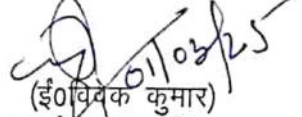 01/03/25
(ई0विवेक कुमार)